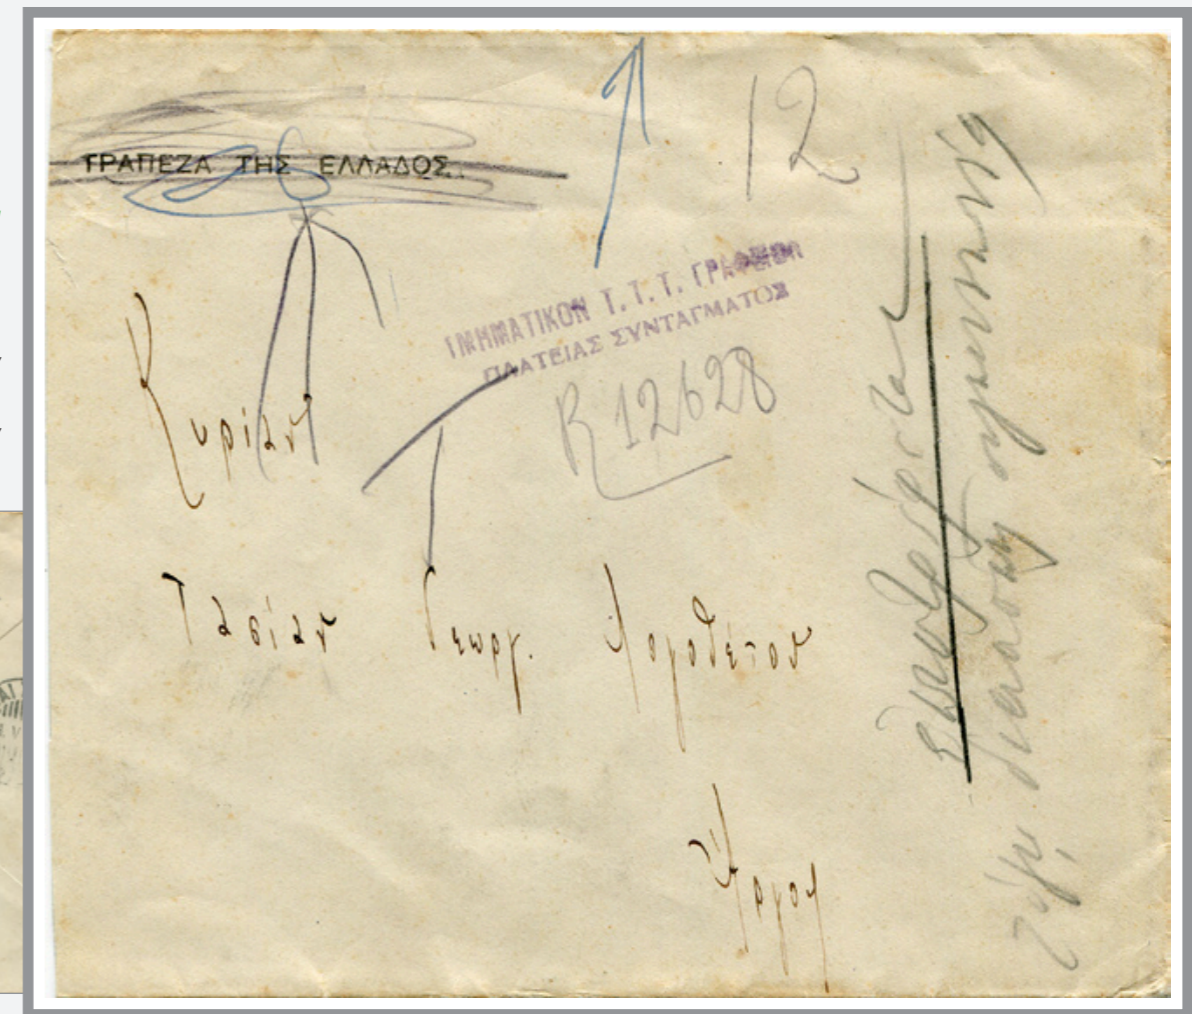 12
ΤΡΑΠΕΖΑ ΤΗΣ ΕΛΛΑΔΟΣ
ΤΜΗΜΑΤΙΚΟΝ Τ. Τ. Τ. ΓΡΑΦΕΙΟΝ
ΠΛΑΤΕΙΑΣ ΣΥΝΤΑΓΜΑΤΟΣ
R 12628
Κυρίαν
Τασίαν Γεωργ. Λογοθέτου
Άργος